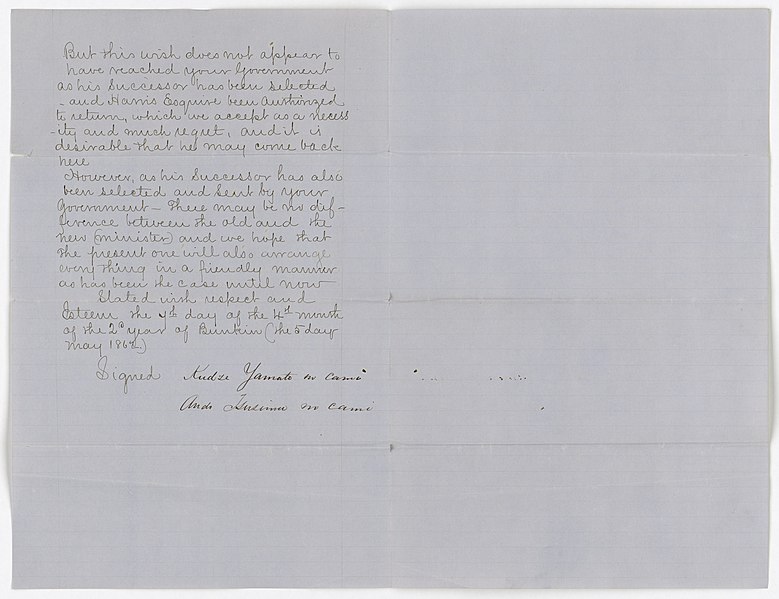 But this wish does not appear to
have reached your Government
as his Successor has been selected
- and Harris Esquire been authorized
to return, which we accept as a necess
-ity and much regret, and it is
desirable that he may come back
here
However, as his Successor has also
been selected and sent by your
Government - There may be no dif-
ference between the old and the
new (minister) and we hope that
the present one will also arrange
every thing in a friendly manner
as has been the case until now
Stated with respect and
Esteem the 7th day of the 4th month
of the 2d year of Bunkin (the 5 day
may 1862)
Signed Kudze Yamato no cami
Ando Tsusima no cami